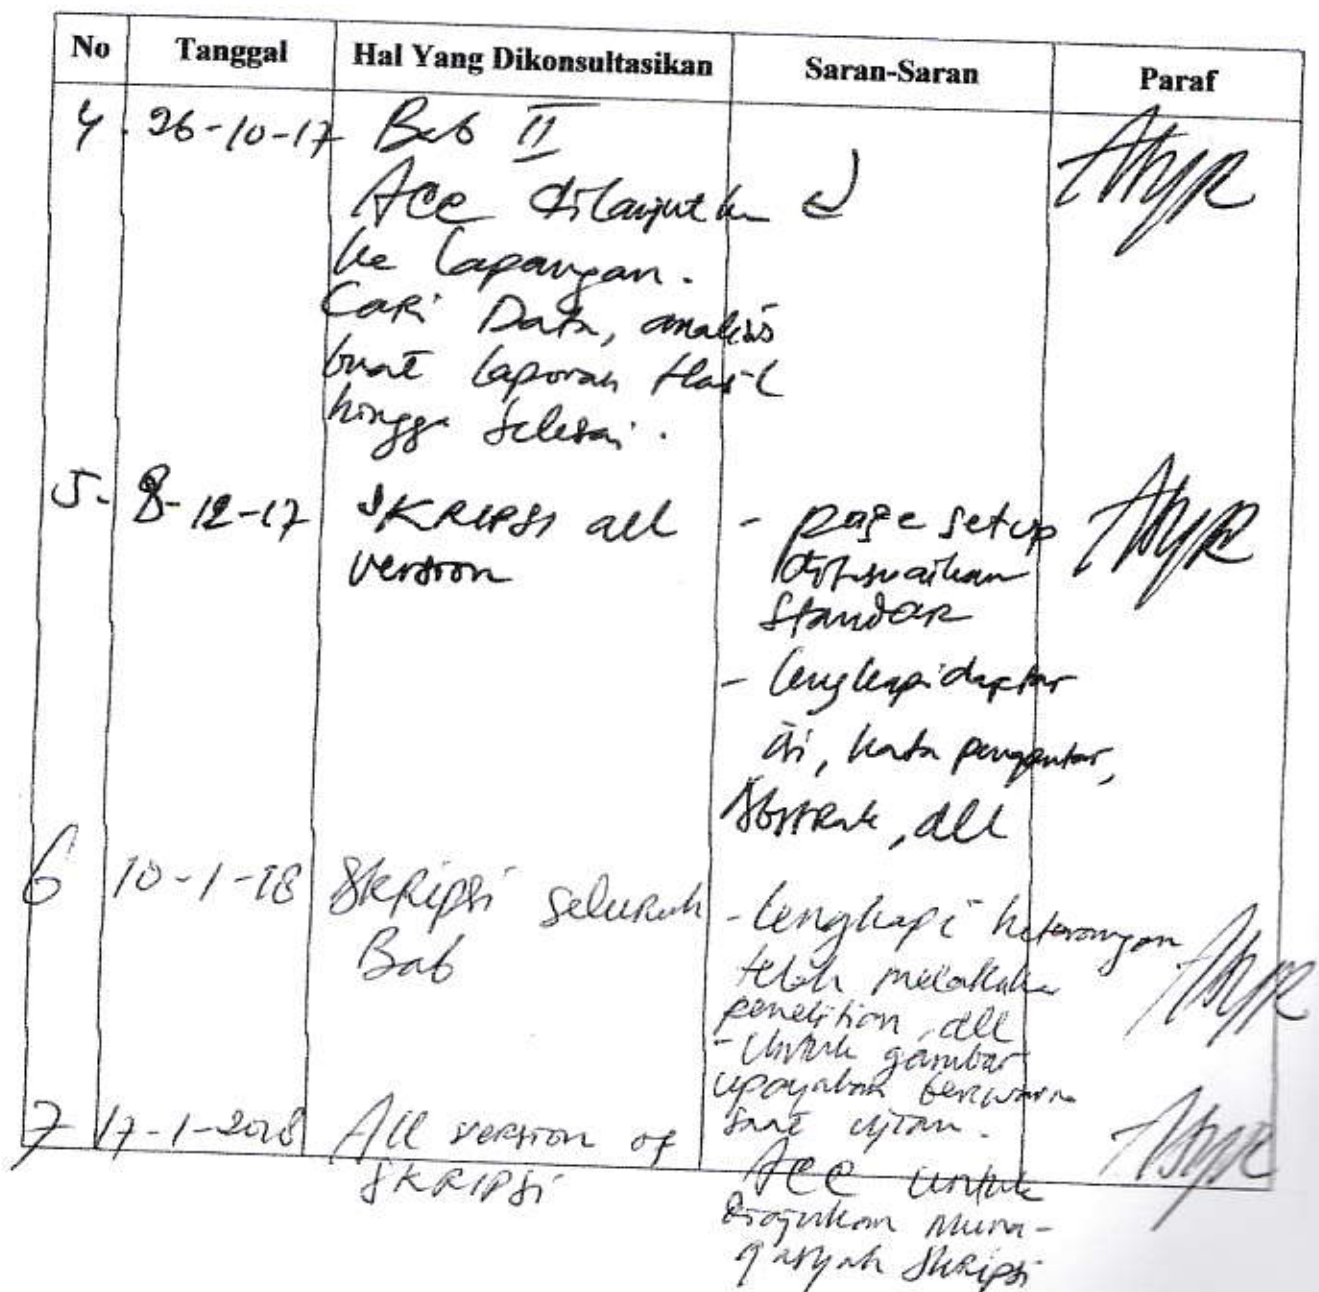 No Tanggal Hal Yang Dikonsultasikan Saran-Saran Paraf
4. 26-10-17 Bab II
Acc dilanjutkn
ke lapangan.
Cari Data, analisis
buat laporan Hasil
hingga selesai.
5. 8-12-17 SKRIPSI all
version
- page setup
disesuaikan
standar
- lengkapi daftar
isi, kata pengantar,
Abstrak, dll
6 10-1-18 Skripsi seluruh
Bab
- lengkapi keterangan
telah melakukan
penelitian, dll
- Untuk gambar
upayakan berwarna
saat ujian.
7 17-1-2018 All version of
SKRIPSI
Acc untuk
diajukan Muna-
qasyah Skripsi